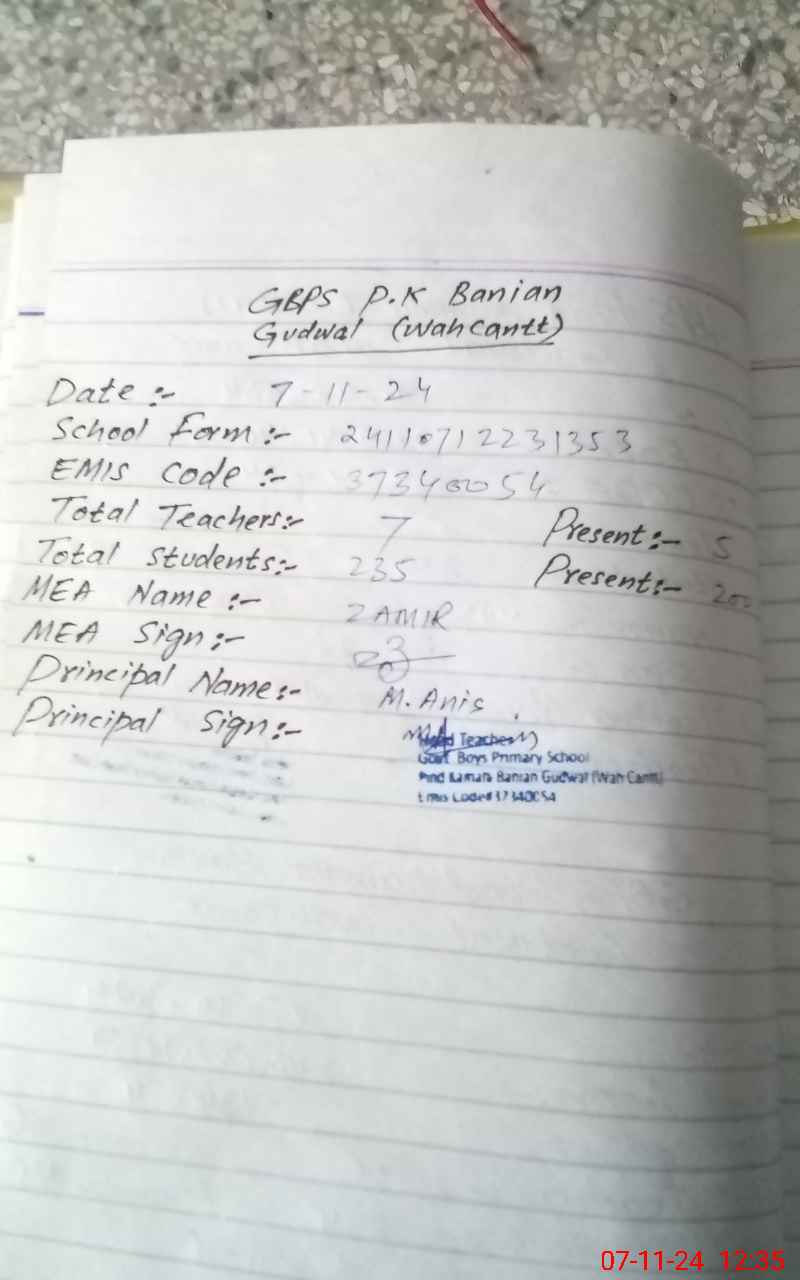 GBPS P.K Banian
Gudwal (Wah cantt)
Date :- 7-11-24
School Form :- 24110712231353
EMIS Code :- 37340054
Total Teachers:- 7 Present:- 5
Total Students:- 235 Present:- 200
MEA Name :- ZAMIR
MEA Sign :-
Principal Name:- M. Anis
Principal Sign:-
Head Teacher
Govt. Boys Primary School
Pind Kamara Banian Gudwal (Wah Cantt)
Emis Code# 37340054
07-11-24 12:35